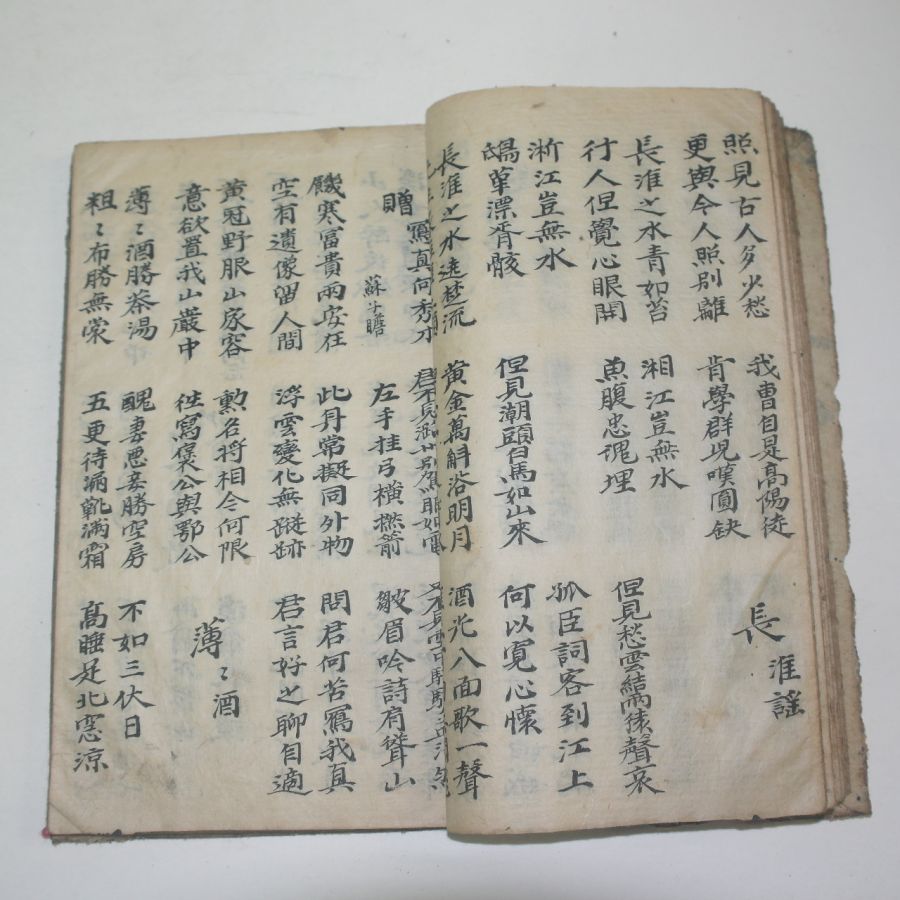 照見古人多少愁 我曹自是高陽徒
更與今人照別離 肯學群児嘆圓缺
長淮謠
長淮之水青如苔 湘江豈無水 但見愁雲結雨猿聲哀
行人但覺心眼開 魚腹忠魂埋 孤臣詞客到江上
淅江豈無水
鴟革漂胥骸 但見潮頭白馬如山來 何以寬心懷
長淮之水遶楚流 黃金萬斛浴明月 酒光八面歌一聲
贈寫真何秀才 蘇子瞻
君不見 別駕眼如電 又不見雪中騎驢孟浩
左手挂弓橫撚箭 皺眉吟詩肩聳山
饑寒富貴兩安在 此身常擬同外物 問君何苦寫我真
空有遺像留人間 浮雲變化無蹤跡 君言好之聊自適
黃冠野服山家容 勳名將相今何限
意欲置我山巖中 往寫褒公與鄂公
薄〻酒
薄〻酒勝茶湯 醜妻悪妾勝空房 不如三伏日
粗〻布勝無裳 五更待漏靴滿霜 高睡足北窓涼